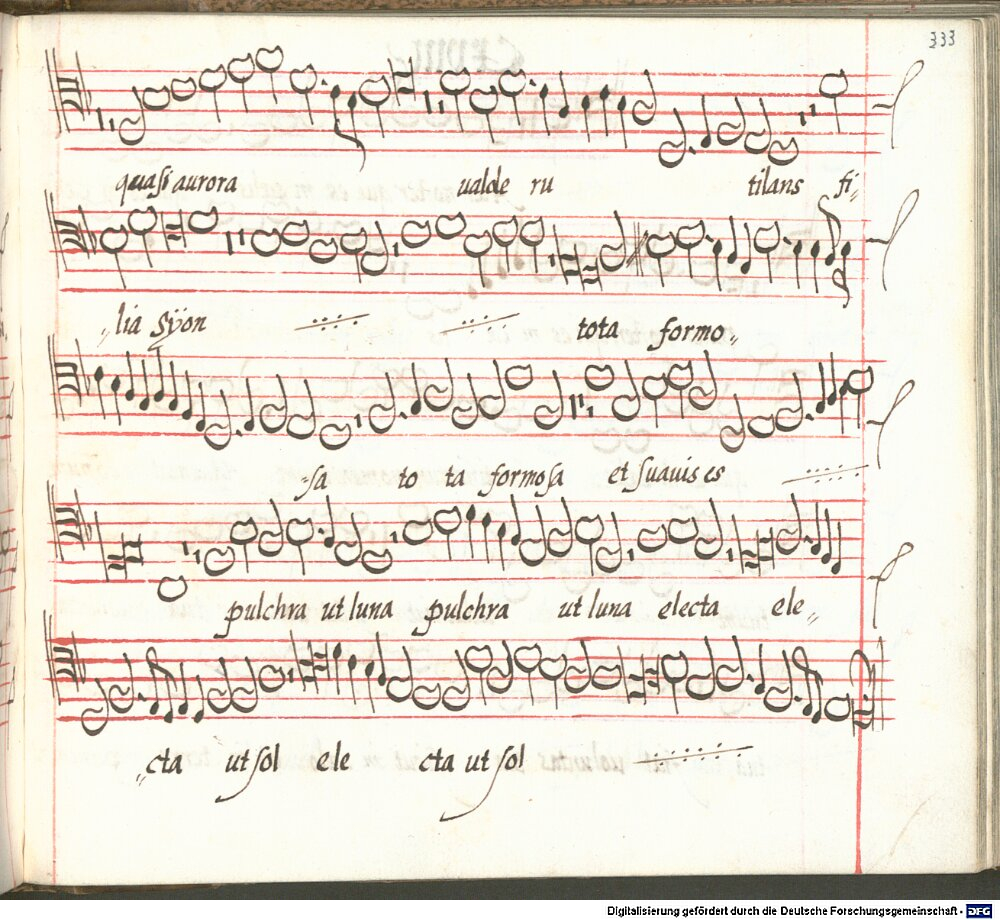 333
quasi aurora ualde ru tilans fi-
„lia sÿon tota formo„
-sa to ta formosa et suauis es
pulchra ut luna pulchra ut luna electa ele„
„cta ut sol ele cta ut sol
Digitalisierung gefördert durch die Deutsche Forschungsgemeinschaft - DFG